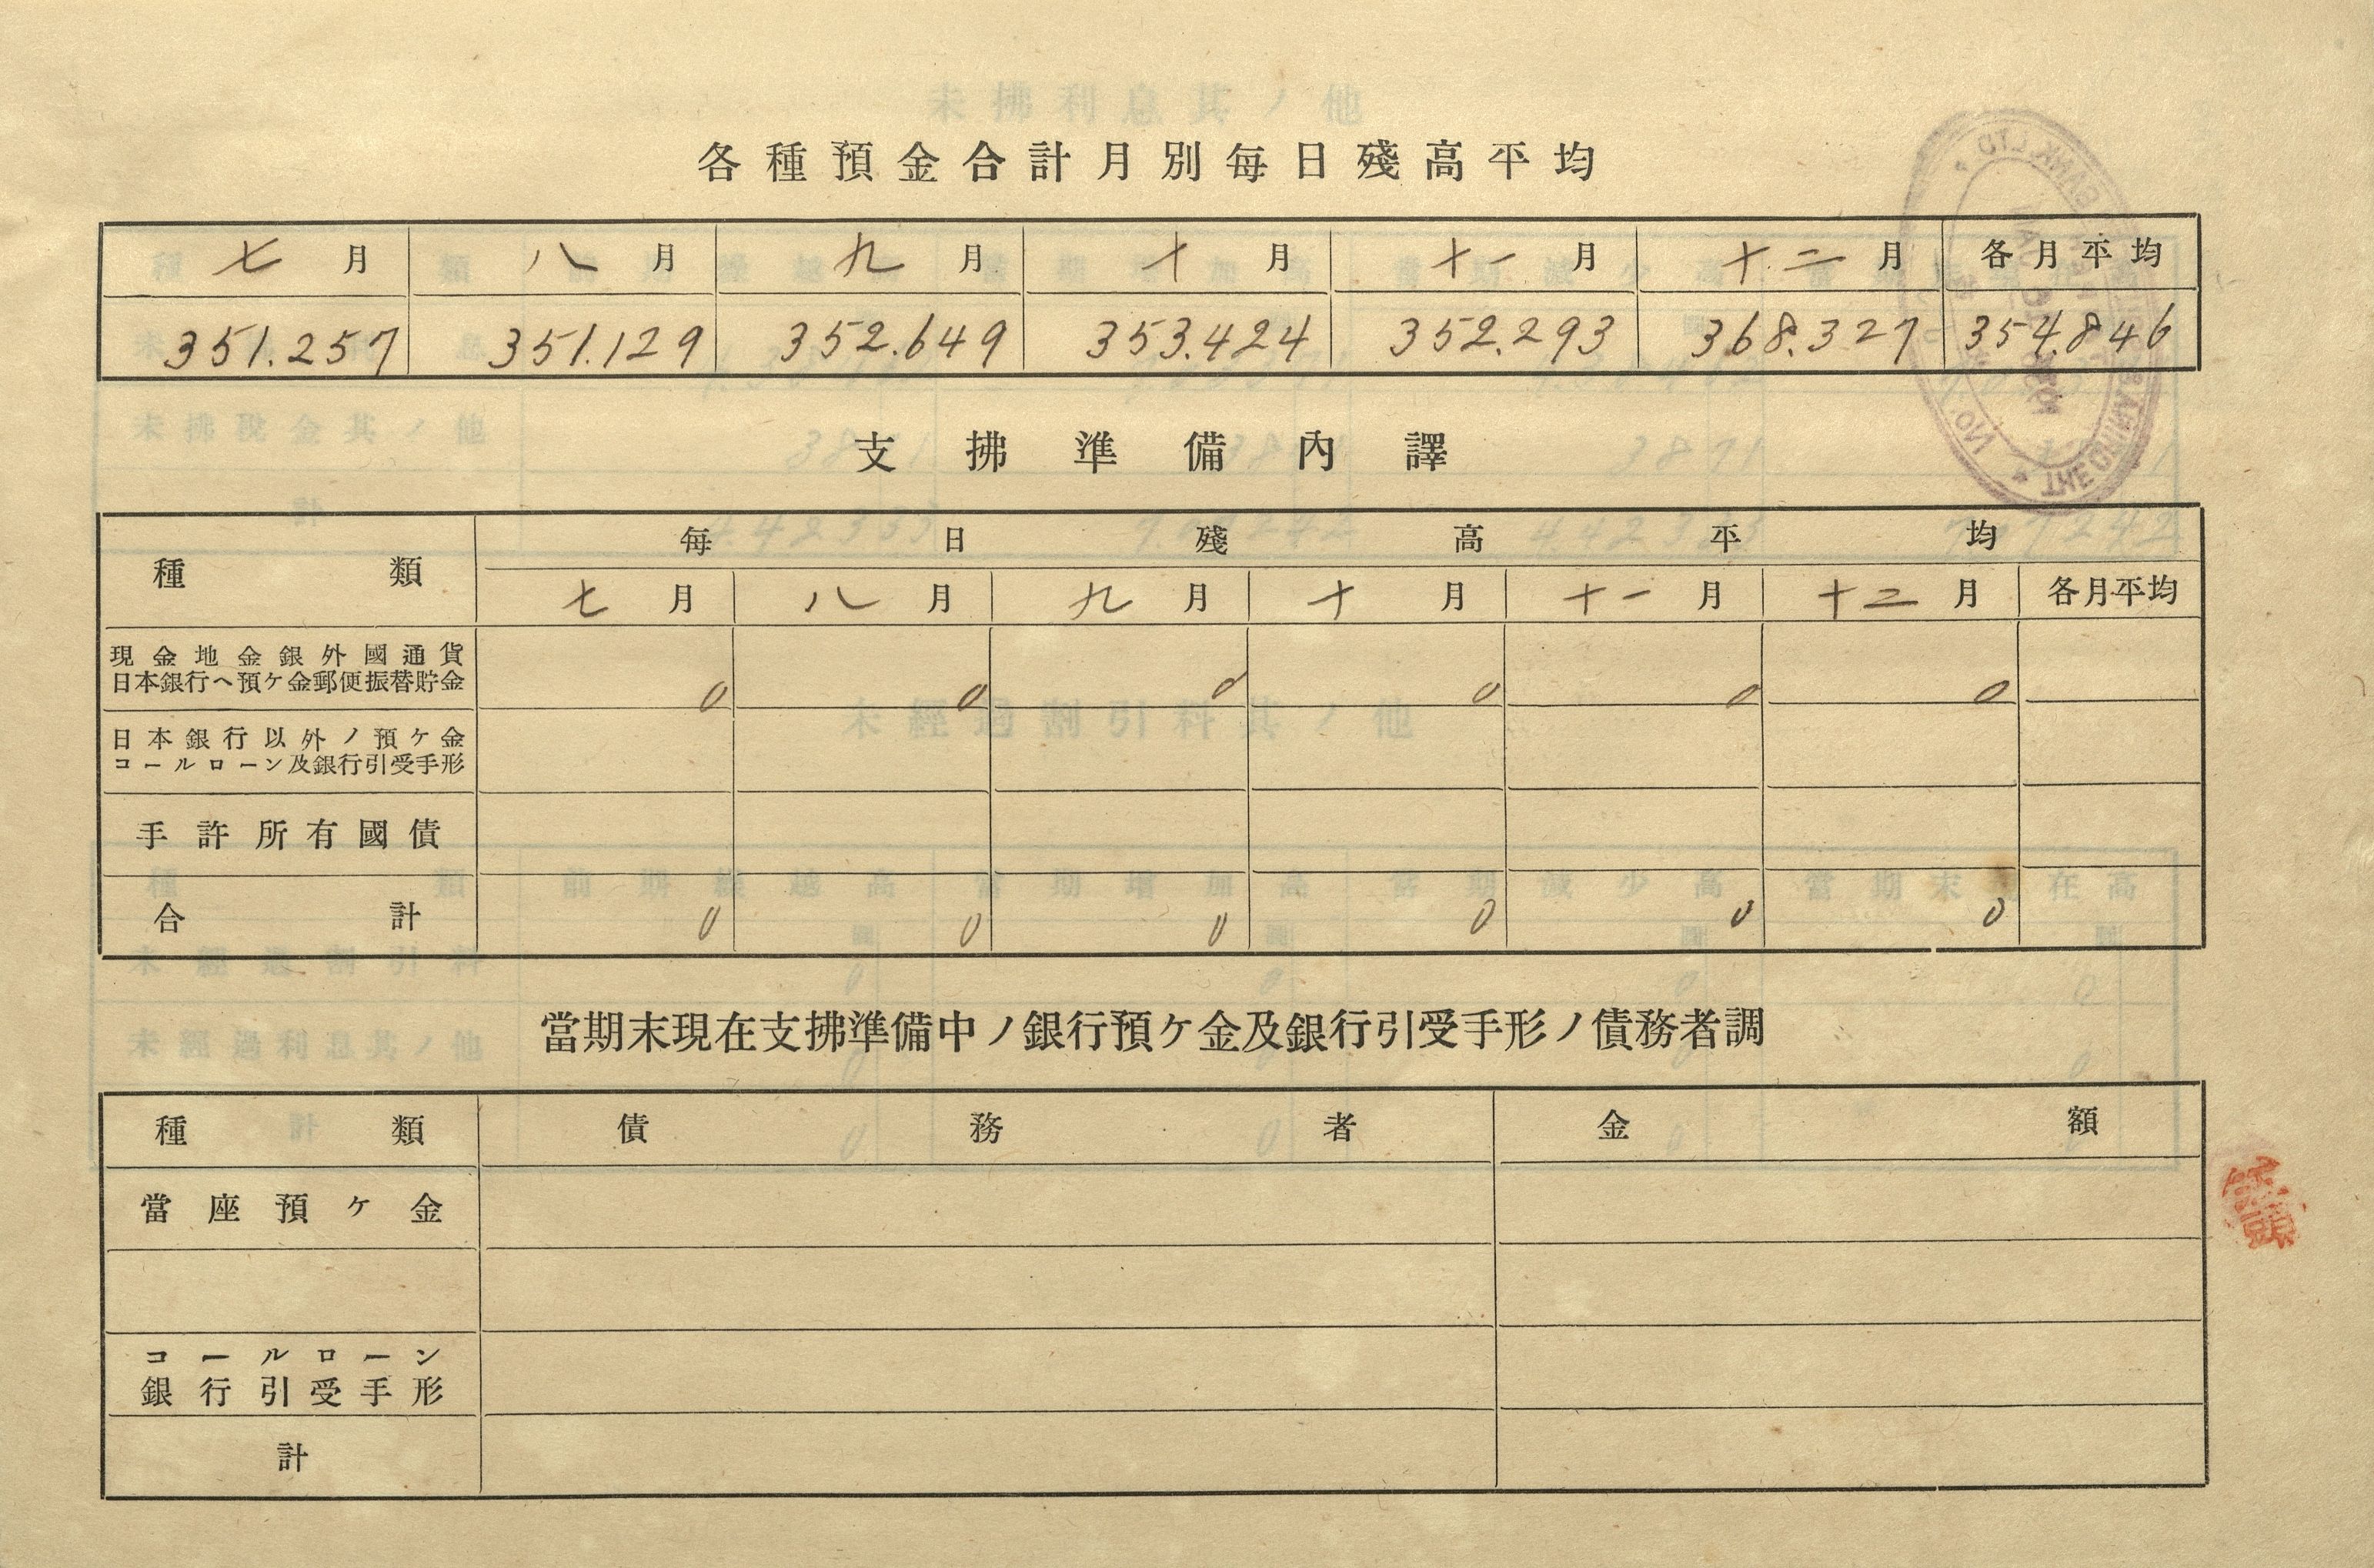 各種預金合計月別每日殘高平均
七月 八月 九月 十月 十一月 十二月 各月平均
351.257 351.129 352.649 353.424 352.293 368.327 354.846
支拂準備內譯
種類 每日殘高平均
七月 八月 九月 十月 十一月 十二月 各月平均
現金地金銀外國通貨
日本銀行ヘ預ケ金郵便振替貯金 0 0 0 0 0 0
日本銀行以外ノ預ケ金
コールローン及銀行引受手形
手許所有國債
合計 0 0 0 0 0 0
當期末現在支拂準備中ノ銀行預ケ金及銀行引受手形ノ債務者調
種類 債務者 金額
當座預ケ金
コールローン
銀行引受手形
計